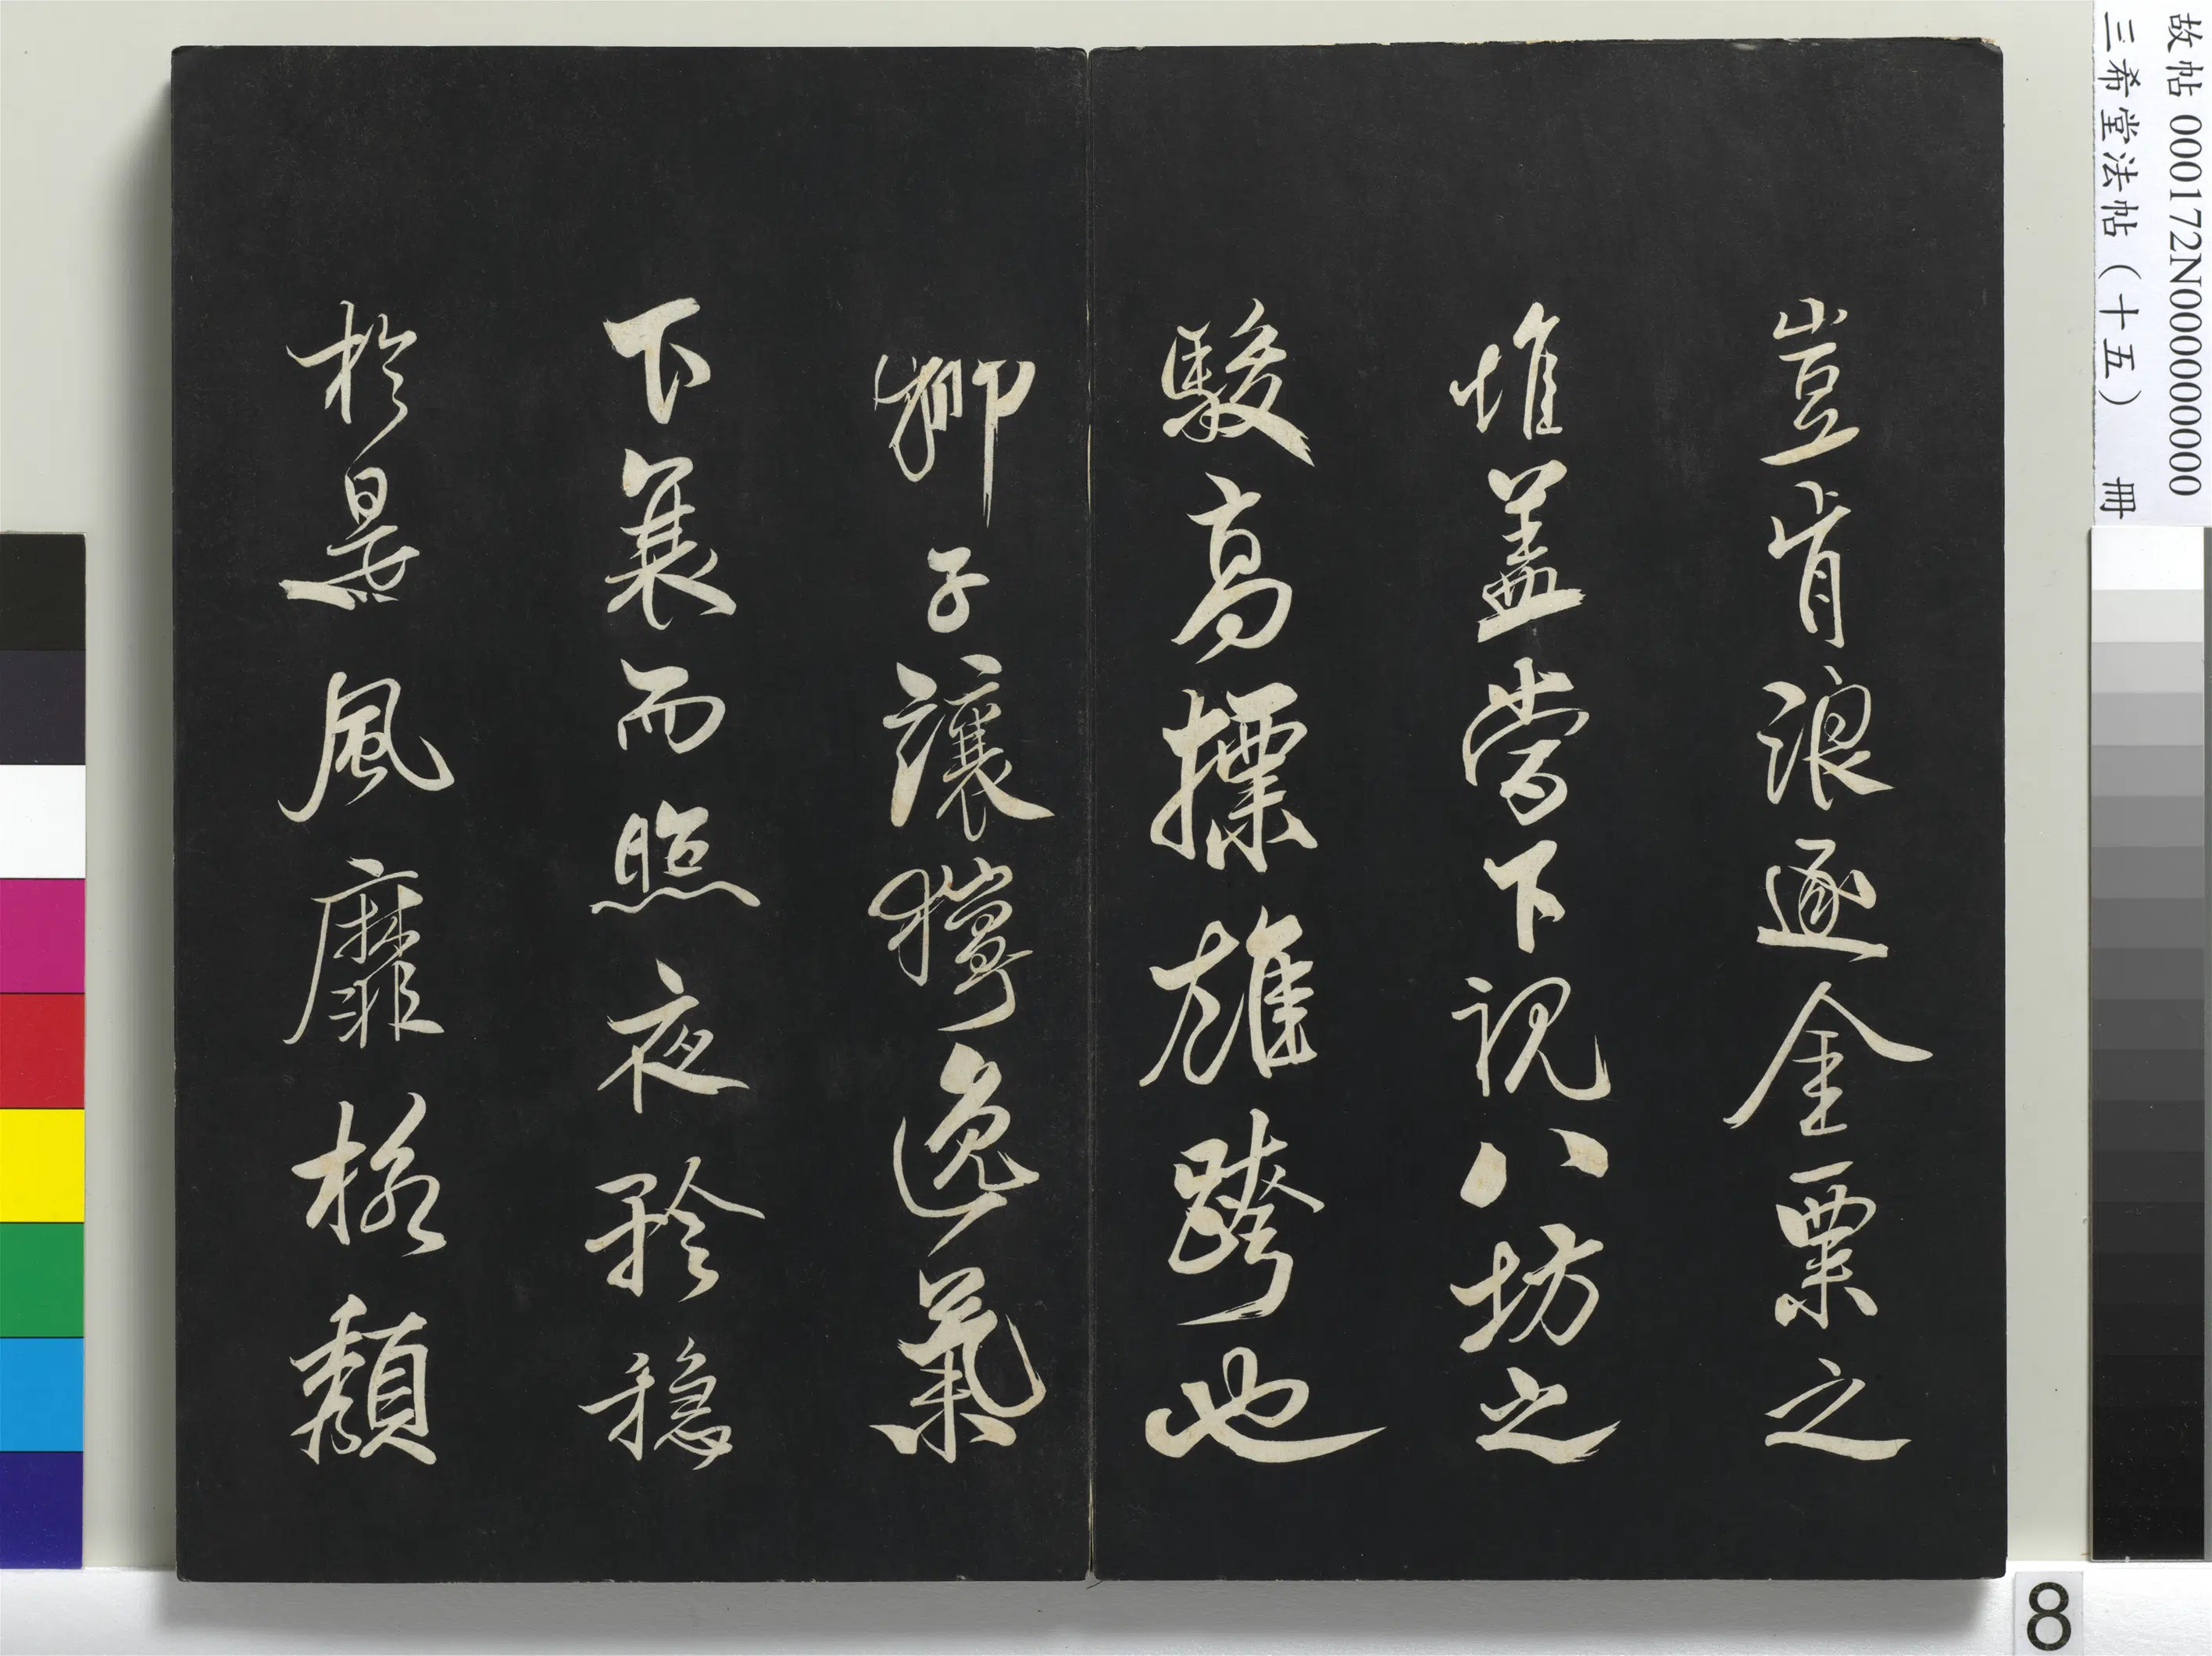 故帖 000172N000000000
三希堂法帖（十五） 冊
豈肯浪逐金粟之
堆盖嘗下視八坊之
駿高摽雄跨也
獅子讓獰逸氣
下襄而照夜矜穩
於是風靡格頹
8